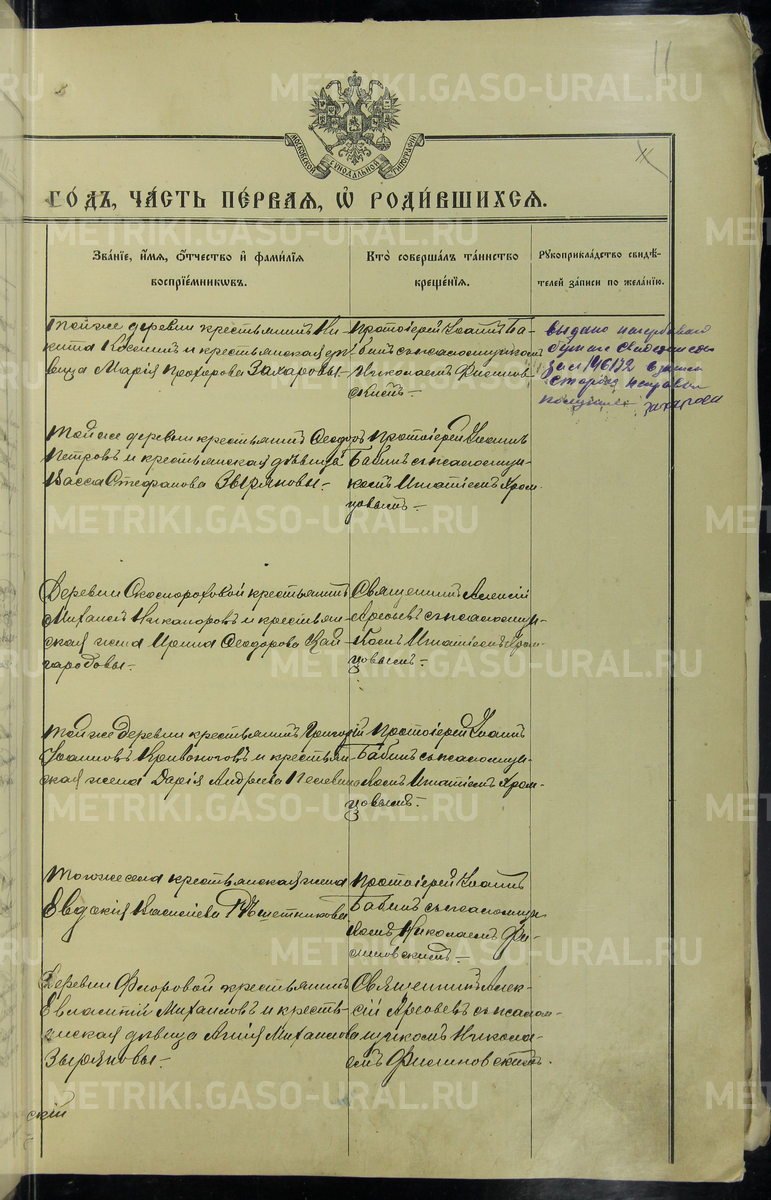 11
METRIKI.GASO-URAL.RU
МОСКОВСКОЙ СѴНОДАЛЬНОЙ ТИПОГРАФІИ
Го́дъ, ча́сть пе́рвая, ѡ роди́вшихся.
Зва́нїе, и́мя, ѻ҆́тчество и҆ фами́лїя
воспрїе́мникѡвъ.
Кто̀ соверша́лъ та́инство
креще́нїя.
Рꙋкоприкла́дство свидѣ́-
телей за́писи по жела́нїю.
Той же деревни крестьянинъ Ни-
кита Косминъ и крестьянская дѣ-
вица Марія Прохорова Захаровы.-
Протоіерей Іоаннъ Ба-
бинъ съ псаломщикомъ
Николаемъ Филинов-
скимъ.-
выдано
Захарова
Той же деревни крестьянинъ Ѳеодоръ
Петровъ и крестьянская дѣвица
Васса Стефанова Зыряновы.-
Протоіерей Іоаннъ
Бабинъ съ псаломщи-
комъ Игнатіемъ Хром-
цовымъ.-
Деревни Скоморохов​ой крестьянинъ
Михаилъ Никаноровъ и крестьян-
ская жена Ирина Ѳеодорова Кай-
городовы.-
Священникъ Алексій
Арефьевъ съ псаломщи-
комъ Игнатіемъ Хром-
цовымъ.-
Той же деревни крестьянинъ Григорій
Іоанновъ Кривоноговъ и крестьян-
ская жена Дарія Андреева
Протоіерей Іоаннъ
Бабинъ съ псаломщи-
комъ Игнатіемъ Хром-
цовымъ.-
Того же села крестьянская жена
Евдокія Василіева Рѣшетникова
Протоіерей Іоаннъ
Бабинъ съ псаломщи-
комъ Николаемъ Фи-
линовскимъ.-
Деревни Флоровой крестьянинъ
Евлампій Михаиловъ и кресть-
янская дѣвица Агнія Михаилова
Зыряновы.-
Священникъ Алек-
сій Арефьевъ съ псалом-
щикомъ Никола-
емъ Филиновскимъ.
скій